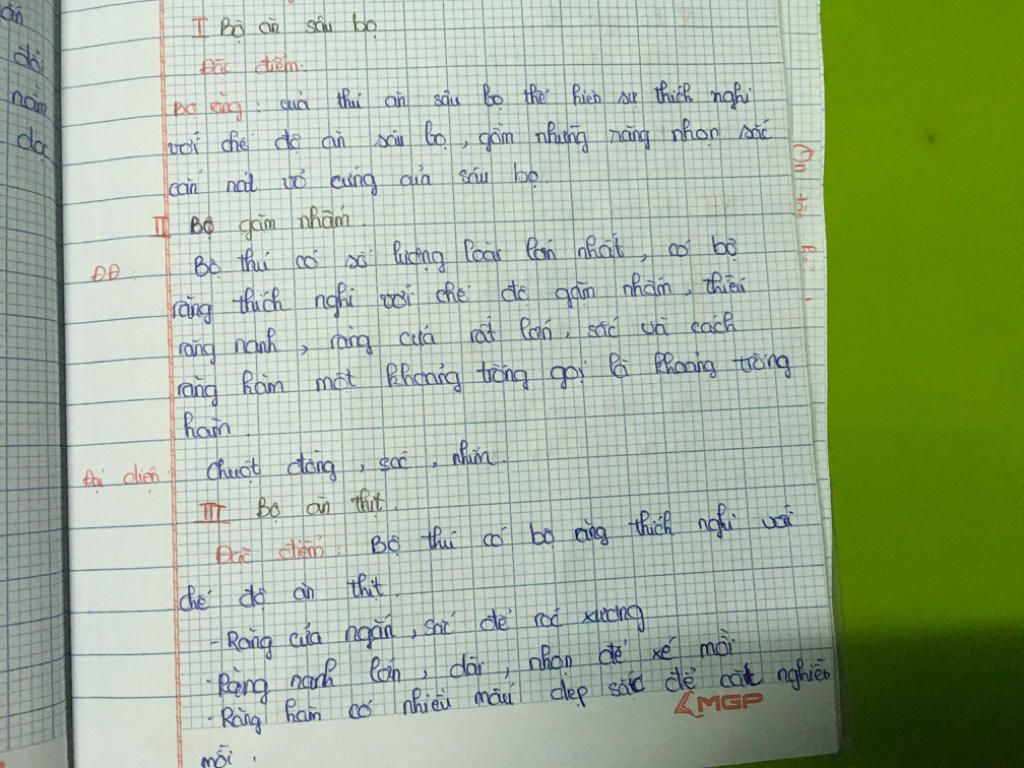 ăn
đôi
nằm
da
I Bộ ăn sâu bọ
Đặc điểm.
Bộ răng : của thú ăn sâu bọ thể hiện sự thích nghi
với chế độ ăn sâu bọ, gồm những răng nhọn sắc
cắn nát vỏ cứng của sâu bọ.
II Bộ gặm nhấm.
ĐĐ : Bộ thú có số lượng loài lớn nhất, có bộ
răng thích nghi với chế độ gặm nhấm, thiếu
răng nanh, răng cửa rất lớn, sắc và cách
răng hàm một khoảng trống gọi là khoảng trống
hàm.
Đại diện : Chuột đồng, sóc, nhím.
III Bộ ăn thịt.
Đặc điểm : Bộ thú có bộ răng thích nghi với
chế độ ăn thịt.
- Răng cửa ngắn, sắc để róc xương
- Răng nanh lớn, dài, nhọn để xé mồi
- Răng hàm có nhiều mấu dẹp sắc để cắt nghiền
mồi.
MGP